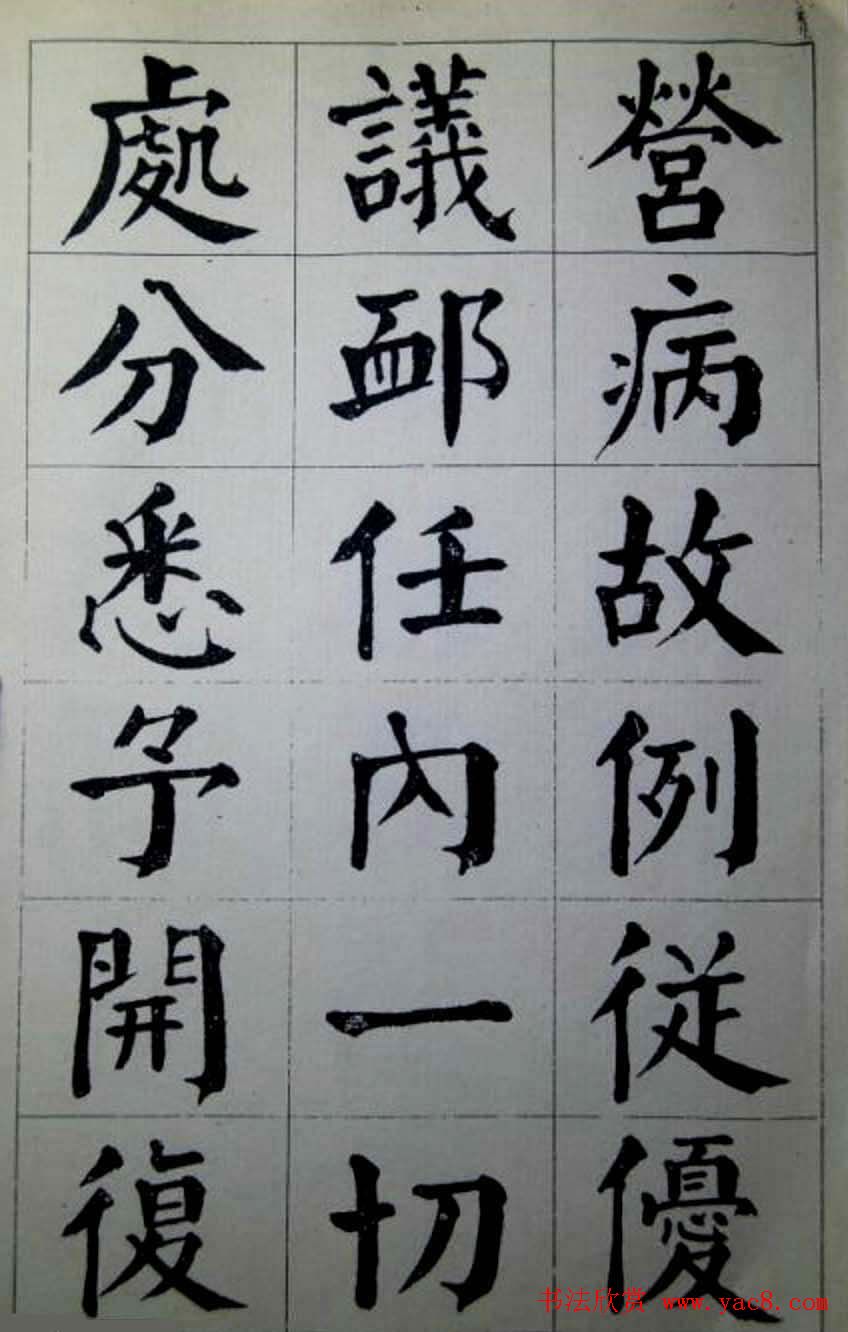 營病故例從優
議卹任內一切
處分悉予開復
书法欣赏 www.yac8.com